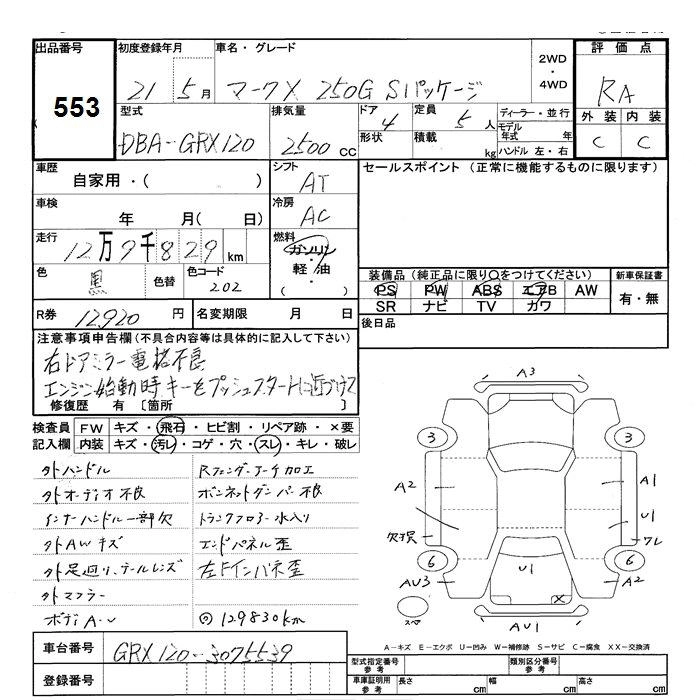 出品番号
553
初度登録年月
21 5月
車名・グレード
マークX 250G Sパッケージ
2WD
・
4WD
評価点
RA
型式
DBA-GRX120
排気量
2500 CC
ドア
4
形状
定員
5人
積載
kg
ディーラー・並行
モデル年式 年
ハンドル 左・右
外装 内装
C C
車歴
自家用・( )
シフト
AT
セールスポイント (正常に機能するものに限ります)
車検
年 月( 日)
冷房
AC
走行
12万9千829km
燃料
ガソリン
軽・油
( )
色
黒
色替
色コード
202
装備品(純正品に限り○をつけてください)
新車保証書
PS PW ABS エアB AW
SR ナビ TV カワ
有・無
R券 12920円
名変期限 月 日
後日品
注意事項申告欄(不具合内容等は具体的に記入して下さい)
右ドアミラー電格不良
エンジン始動時キーをプッシュスタートに近づけて
修復歴 有 [箇所 ]
検査員
記入欄
FW キズ・飛石・ヒビ割・リペア跡・×要
内装 キズ・汚レ・コゲ・穴・スレ・キレ・破レ
外ハンドル
Rフェンダーアーチ加工
外オーディオ不良
ボンネットダンパー不良
インナーハンドル一部欠
トランクフロアー水入り
外AWキズ
エンドパネル歪
外足廻り、テールレンズ
左Fインパネ歪
外マフラー
ボディA-U
◎129830km
A3
3 3
A2 A1
U1
欠損 ワレ
6 6
U1
AU3 A2
×
スペ
AU1
車台番号
GRX120-3075539
登録番号
A-キズ E-エクボ U-凹み W-補修跡 S-サビ C-腐食 XX-交換済
型式指定番号
参考
類別区分番号
参考
車庫証明用
参考
長さ cm 幅 cm 高さ cm